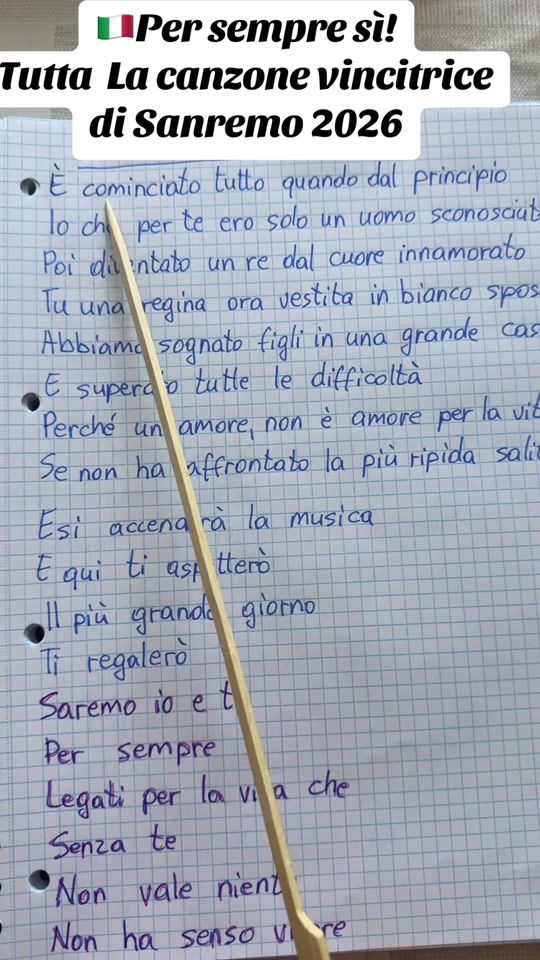 🇮🇹Per sempre sì!
Tutta La canzone vincitrice
di Sanremo 2026
È cominciato tutto quando dal principio
Io che per te ero solo un uomo sconosciut
Poi diventato un re dal cuore innamorato
Tu una regina ora vestita in bianco spos
Abbiamo sognato figli in una grande cas
E tutte le difficoltà
Perché un amore, non è amore per la vit
Se non ha affrontato la più ripida salit
Esi la musica
E qui ti aspetterò
Il più grande giorno
Ti regalerò
Saremo io e t
Per sempre
Legati per la vita che
Senza te
Non vale nient
Non ha senso vivere